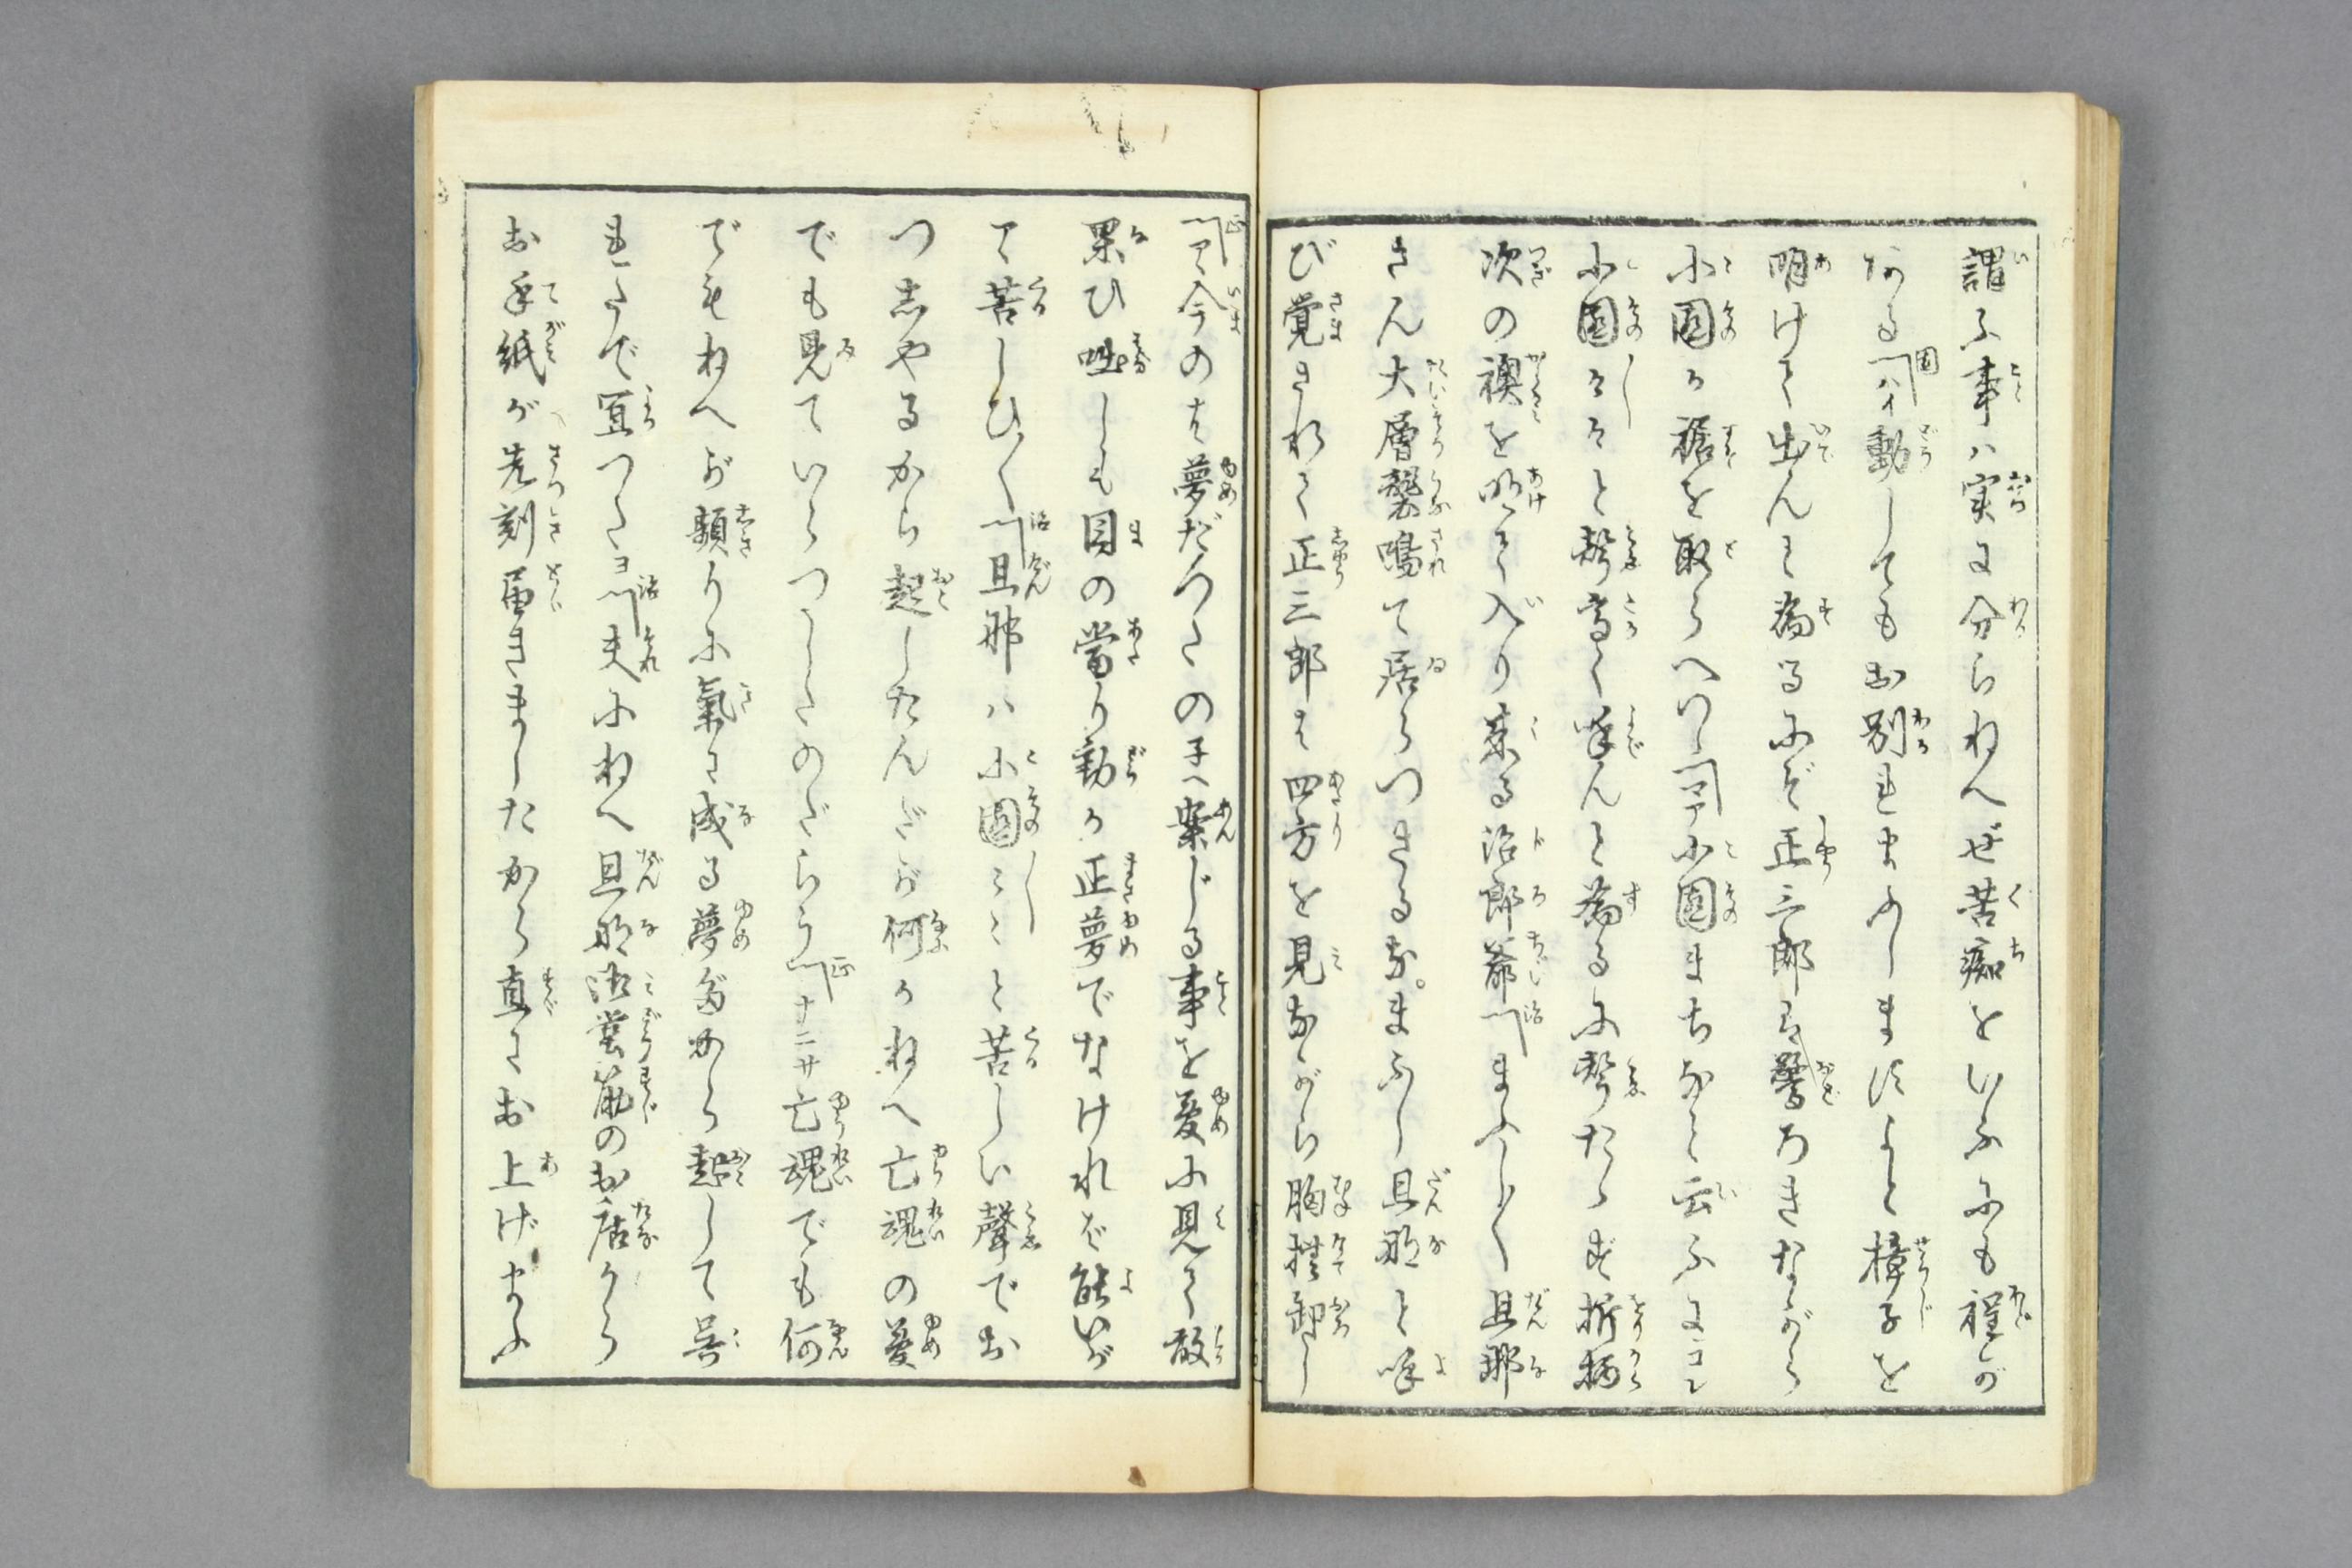 謂ふ事ハ実に分らねへぜ苦痴をいふにも程が
ある園「ハイ動してもお別れ申しますよと樟子を
明けて出んと為るにぞ正三郎は驚ろきながら
小園の裾を取らへ「マア小園まちなと云ふにコレ
小園〳〵と聲高く呼んと為るに聲たゝず折柄
次の襖を明て入り来る治郎爺治「もし〳〵旦那
さん大層襲鳴て居らつさるな。もし旦那と呼
び覚されて正三郎は四方を見ながら胸撫卸し
正「アヽ今のは夢だつたの子へ案じる事を夢に見て敵
果ひ咄しも目の當り動か正夢でなけれバ能いが
アヽ苦しひ〳〵治「旦那ハ小園〻〻と苦しい聲でお
つしやるから起したんだが何かねへ亡魂の夢
でも見ていらつしたのだらう正「ナニサ亡魂でも何
でもねへが頻りに氣に成る夢だから起して呉
れたで宜つたヨ治「夫にねへ旦那御堂筋のお店から
お手紙が先刻届きましたから直にお上げ申ふ